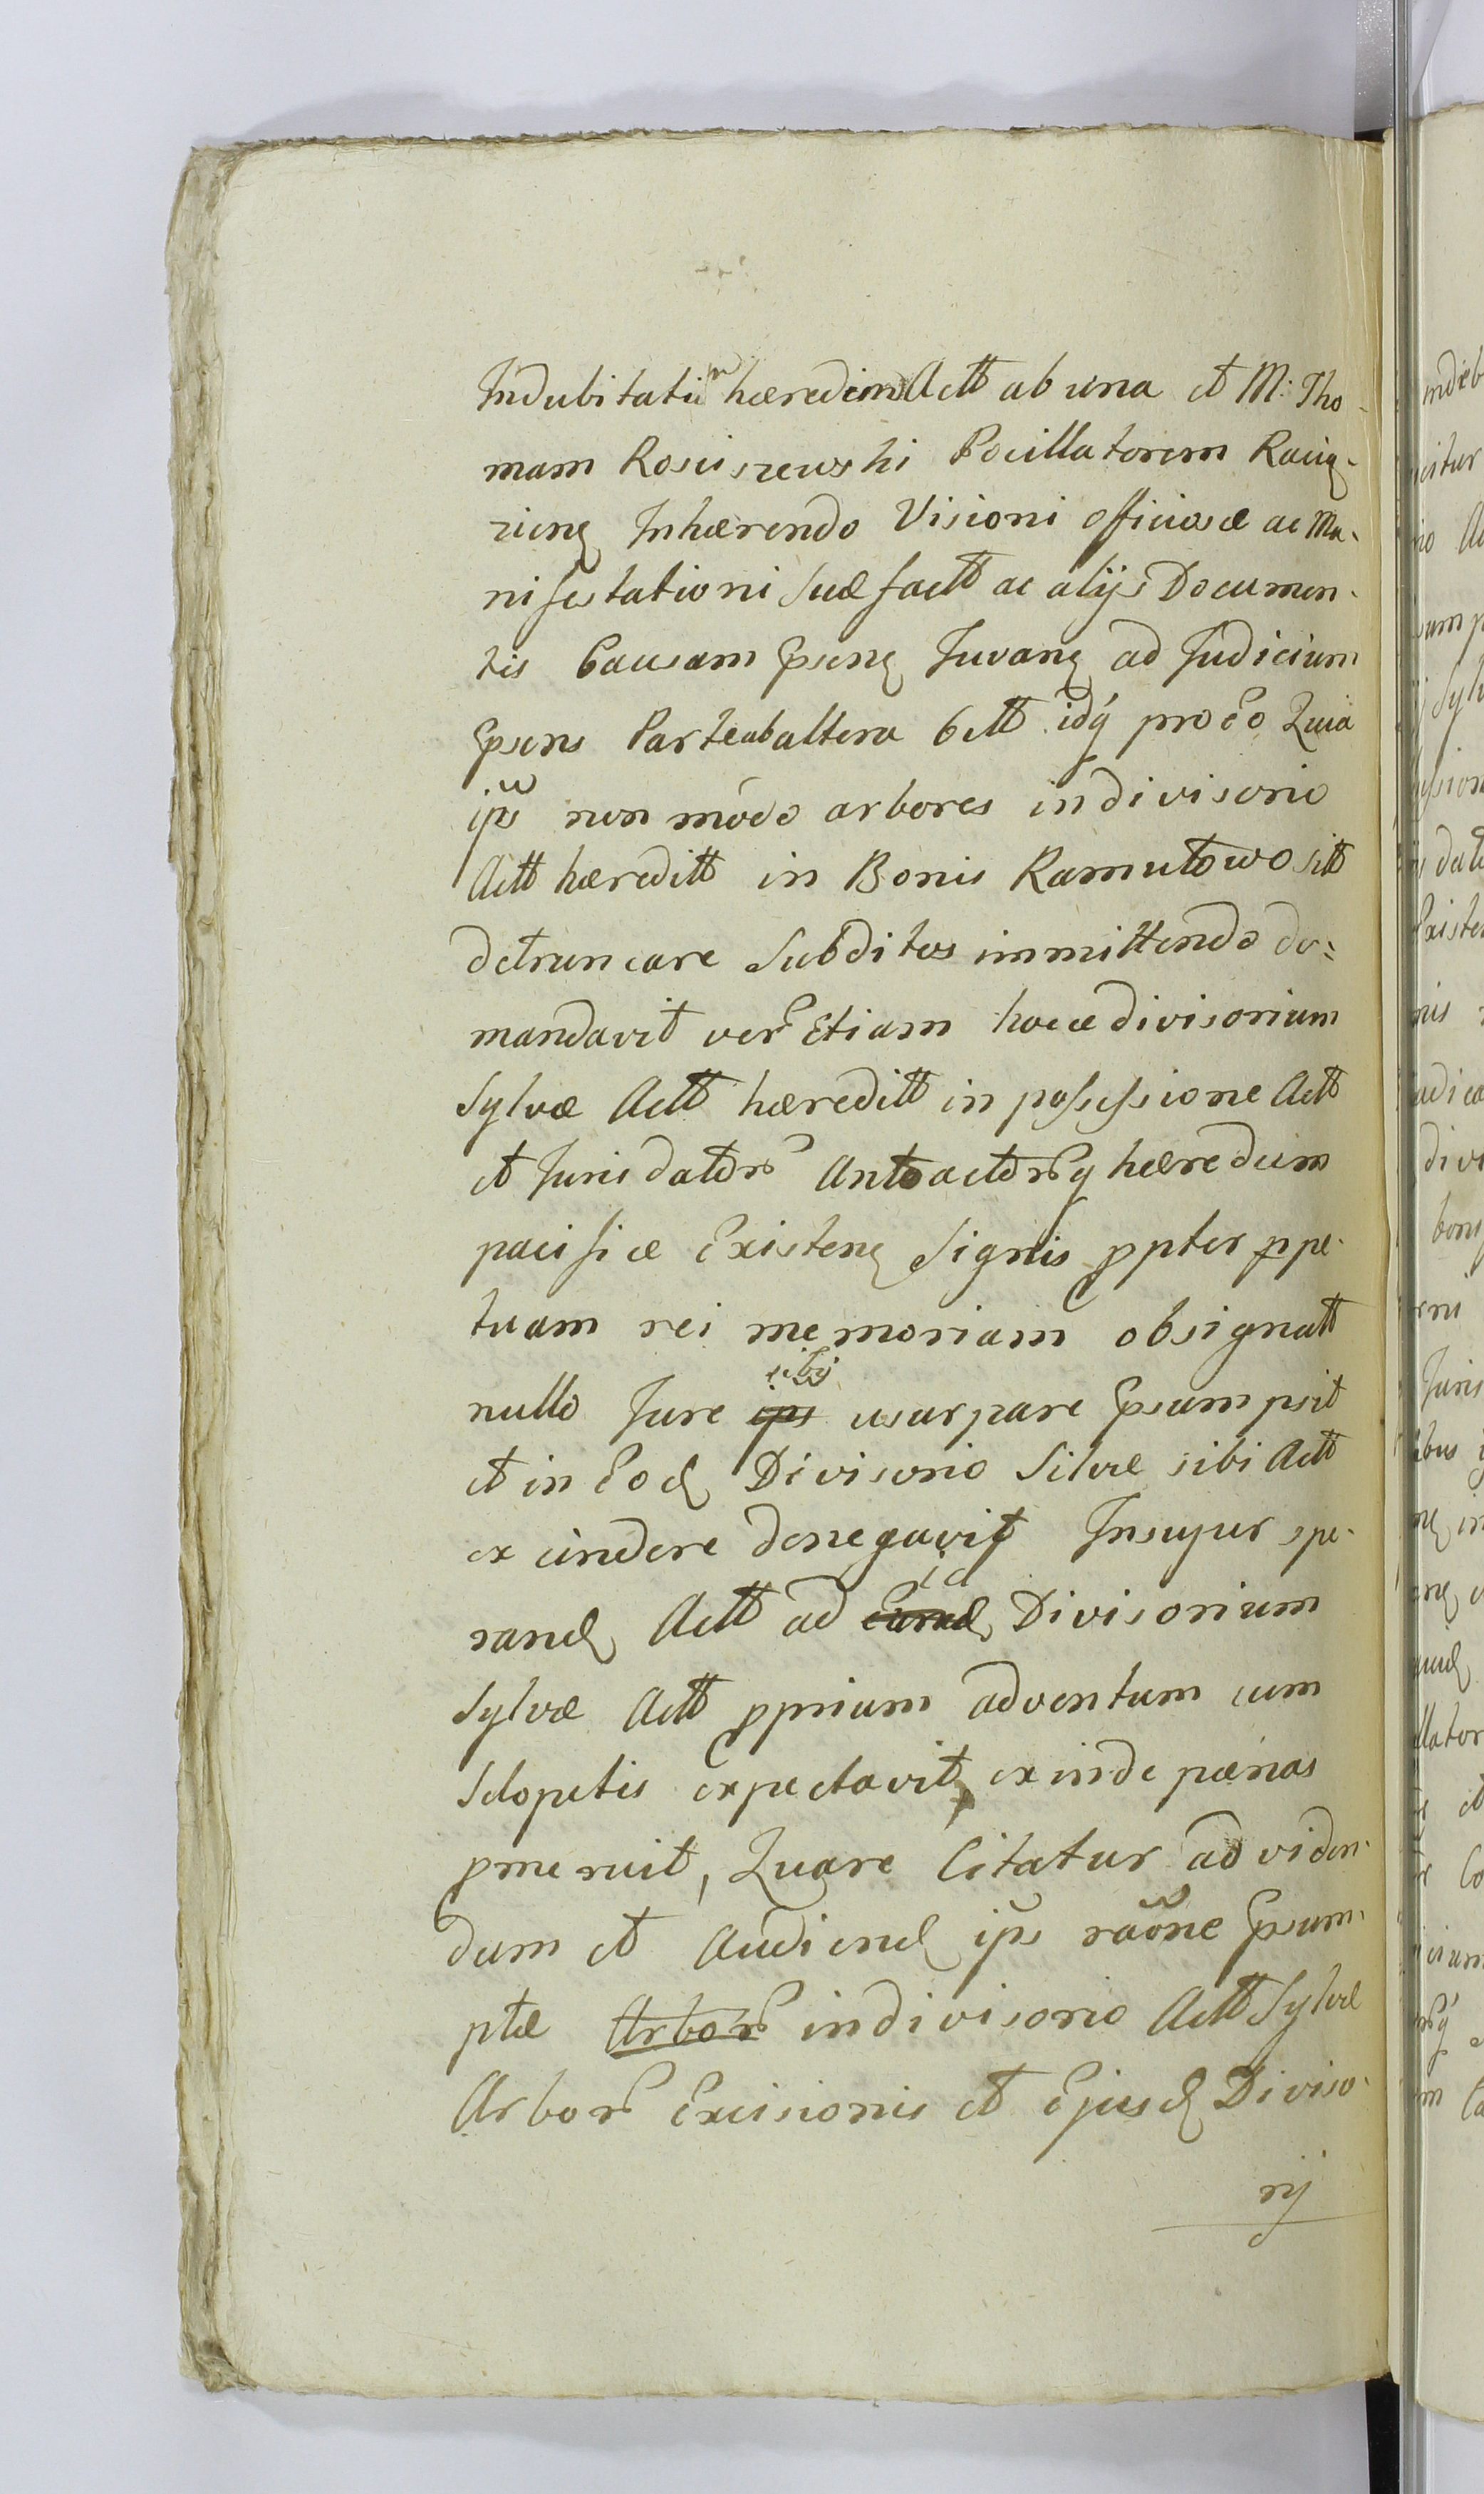 Indubitatũ hæredem Actt ab una et M: Tho-
mam Rosciszewski Pocillatorem Raciąz-
ziens Inhærendo Visioni officiosæ ac Ma-
nifestationi suæ factt ac alijs Documen-
tis Causam Gpsens Juvans ad Judicium
Gpsens Parte ab altera Citt idq pro eo Quia
ips non modo arbores in divisorio
Actt hæreditt in Bonis Ramutowo sitt
detruncare Subditos immittendo de=
mandavit ver Etiam hocce divisorium
Sylvæ Actt hæreditt in possessione Actt
et Juris dator Anteactorq hæredum
pacificæ Existens Signis ppter ppe-
tuam rei memoriam obsignatt
nullo Jure sibi usurpare Gpsumpsit
et in Eod Divisorio Silvæ sibi Actt
excindere denegavit Insuper spe-
rand Actt ad id Divisorium
Sylvæ Actt pprium adventum cum
Sclopetis expectavit, exinde pænas
pmeruit, Quare Citatur ad viden-
dum et Audiend ips raõne Gpsum-
ptæ Arbor in divisorio Actt Sylvæ
Arbor Excisionis et Ejusd Diviso-
rij